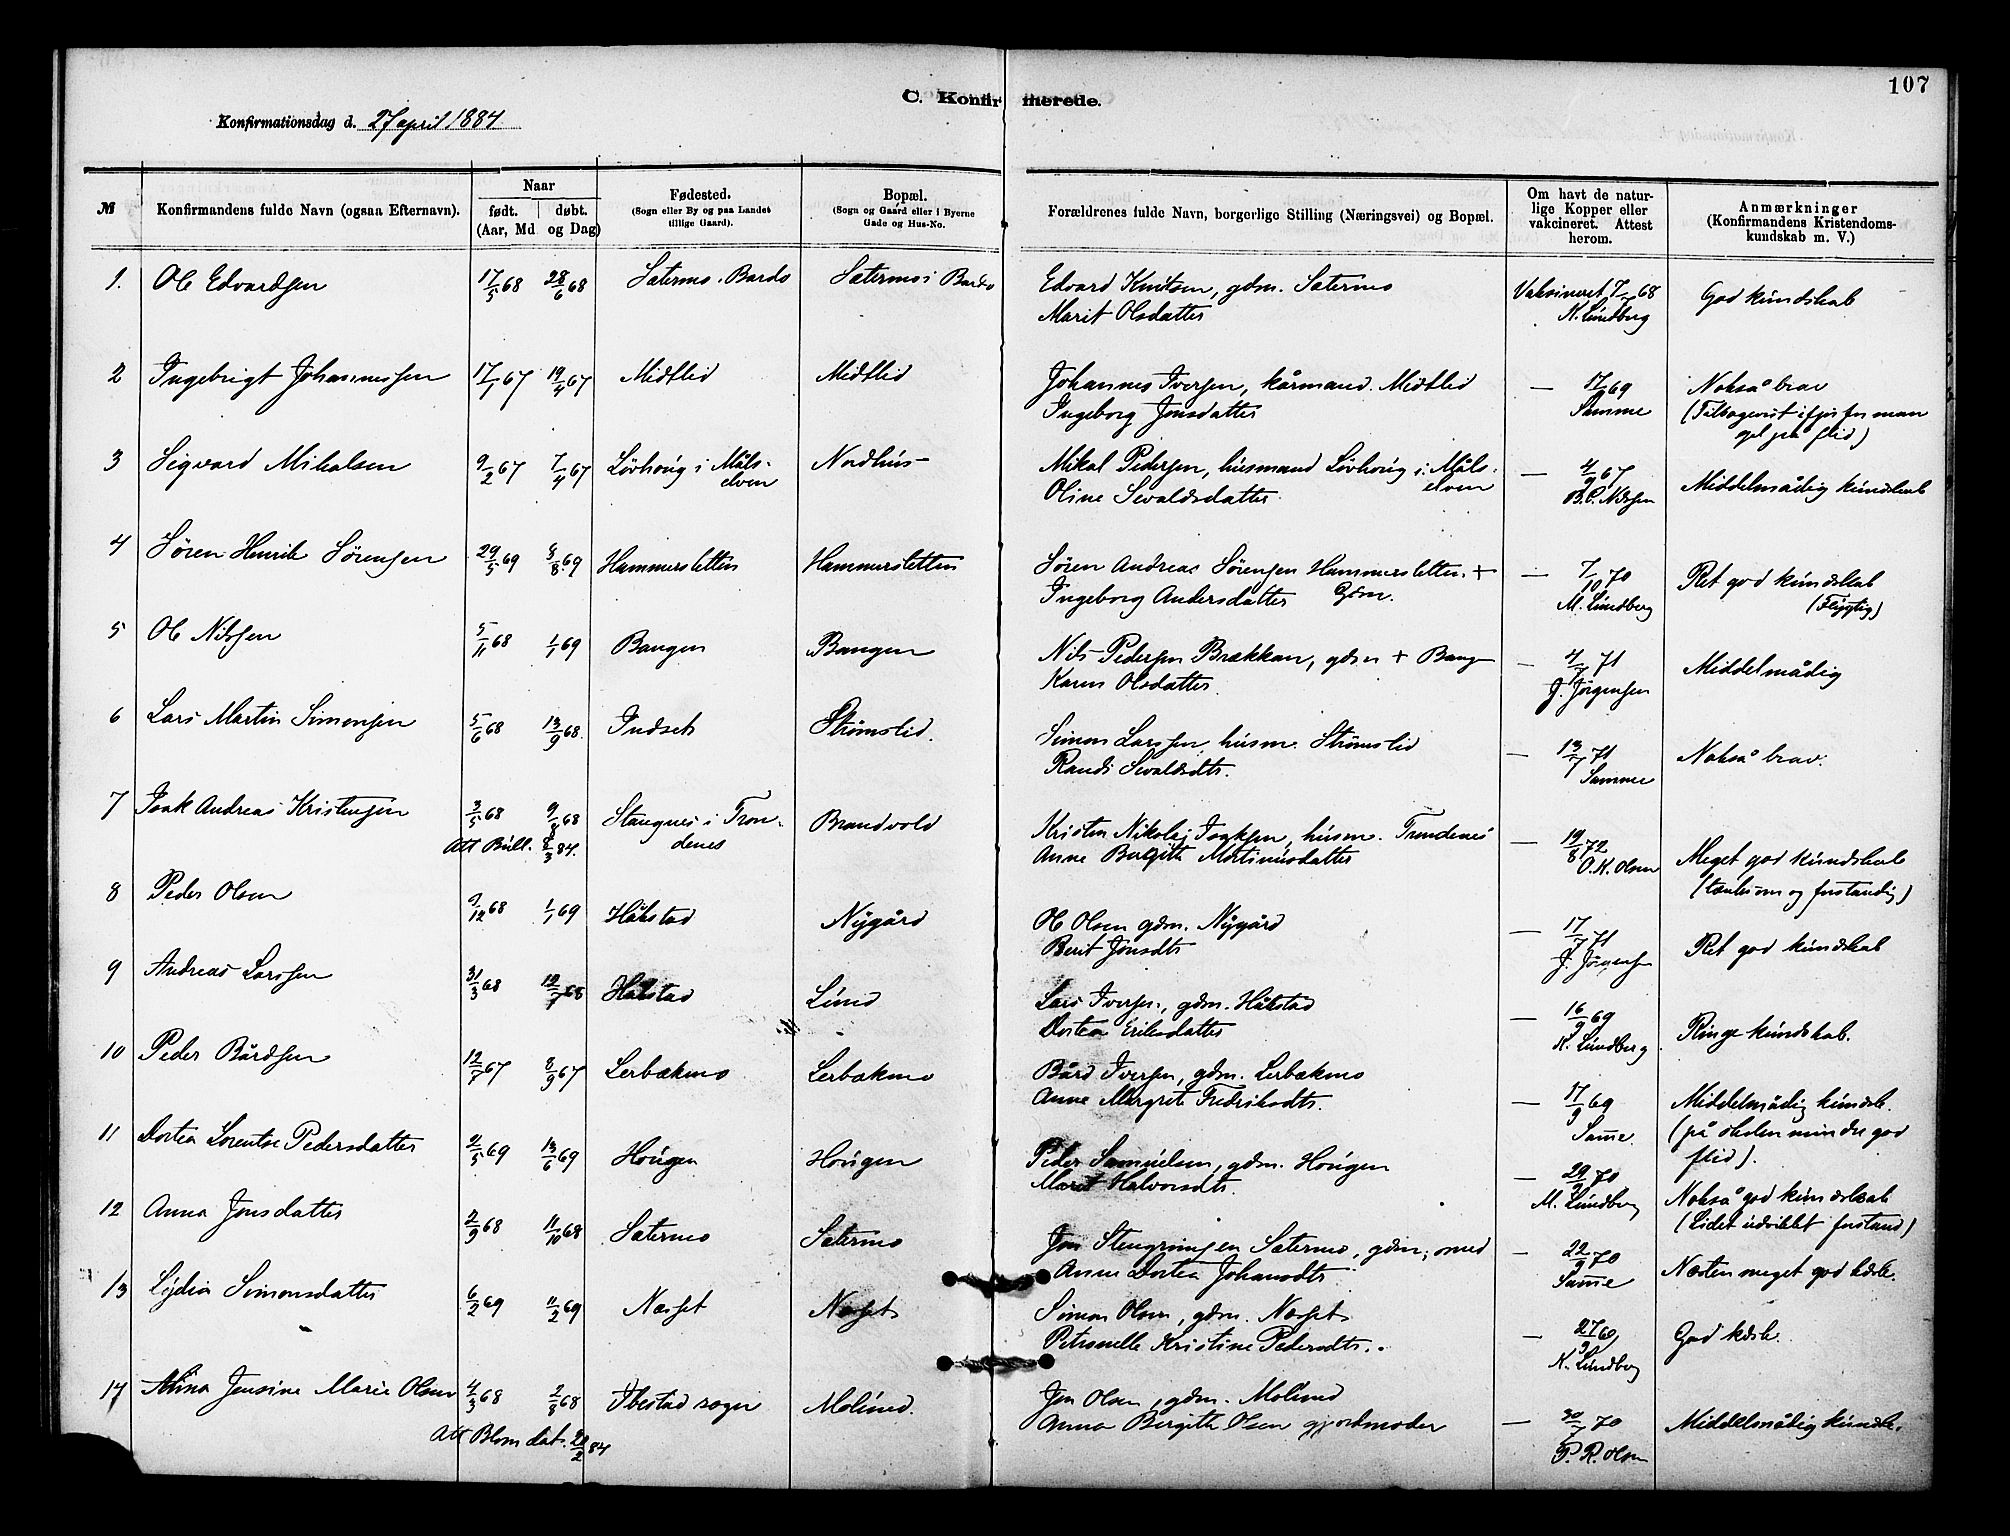 107
C. Konfirmerede.
Konfirmationsdag d. 27 april 1884.
№
Konfirmandens fulde Navn (ogsaa Efternavn).
Naar
født. døbt.
(Aar, Md. og Dag)
Fødested.
(Sogn eller By og paa Landet tillige Gaard).
Bopæl.
(Sogn og Gaard eller i Byerne Gade og Hus-No.
Forældrenes fulde Navn, borgerlige Stilling (Næringsvei) og Bopæl.
Om havt de naturlige Kopper eller vakcineret. Attest herom.
Anmærkninger
(Konfirmandens Kristendomskundskab m. V.)
1. Ole Edvardsen 17/5 68 28/6 68 Sætermo i Bardo Sætermo i Bardo Edvard Knutsen, gdm. Sætermo Vaksineret 7/7 68 God kundskab
Marit Olsdatter K. Lundberg
2 Ingebrigt Johannessen 17/1 67 19/4 67 Midtlid Midtlid Johannes Iversen, kårmand. Midtlid — 17/9 69 Nokså brav
Ingeborg Jonsdatter Samme (Tilbagevist ifjor for mangel på flid)
3 Sigvard Mikalsen 9/2 67 7/4 67 Løvhoug i Målselven Nordhus Mikal Pedersen, husmand Løvhoug i Målselven — 4/9 67 Middelmådig kundskab
Oline Sivaldsdatter B. C. Nilsen
4 Søren Henrik Sørensen 29/5 69 8/8 69 Hammersletten Hammersletten Søren Andreas Sørensen Hammersletten + — 7/10 70 Ret god kundskab
Ingeborg Andersdatter Gdm. M. Lundberg (Flygtig)
5 Ole Nilssen 5/11 68 1/1 69 Bangen Bangen Nils Pedersen Brækkan, gdm + Bangen — 4/7 71 Middelmådig
Karen Olsdatter J. Jørgensen
6 Lars Martin Simonsen 5/6 68 13/9 68 Indset Strømslid. Simon Larssen, husm. Strømslid — 13/7 71 Nokså brav.
Randi Sivaldsdtr. Samme
7 Isak Andreas Kristensen 3/5 68 9/8 68 Stangnes i Trondenes Brandvold Kristen Nikolaj Isaksen, husm. Trondenes — 19/8 72 Meget god kundskab
Att Bull. 8/3 84. Anne Bergitte Martinusdatter O. K. Olsen (tænksom og forstandig)
8 Peder Olsen 9/12 68 1/1 69 Håkstad Nygård Ole Olsen gdm. Nygård — 17/7 71 Ret god kundskab
Berit Jonsdtr J. Jørgensen
9 Andreas Larssen 31/3 68 12/7 68 Håkstad Lund Lars Iversen, gdm. Håkstad — 16/9 69 Ringe kundskab.
Dortea Eriksdatter K. Lundberg
10 Peder Bårdsen 12/7 67 8/9 67 Lerbækmo Lerbækmo Bård Iversen, gdm. Lerbækmo — 17/9 69 Middelmådig kundsk.
Anne Margrete Fredriksdtr. Samme. (på skolen mindre god flid).
11 Dortea Lorentse Pedersdatter 2/5 69 13/6 69 Hougen Hougen Peder Samuelsen, gdm. Hougen — 29/9 70 Nokså god kundskab
Marit Halvorsdtr. M. Lundberg (Lidet udviklet forstand)
12 Anna Jonsdatter 2/9 68 11/10 68 Sætermo Sætermo Jon Stengrimsen Sætermo, gdm. med — 22/9 70 Næsten meget god kdsk.
Anne Dortea Johansdtr Samme
13 Lydia Simonsdatter 6/2 69 11/2 69 Næset Næset Simon Olsen, gdm. Næset — 27/9 69 God kdsk.
Petronelle Kristine Pedersdtr. K. Lundberg
14 Alina Jensine Marie Olsen 4/3 68 2/8 68 Ibestad sogn Molund. Jon Olsen, gdm. Molund — 30/7 70 Middelmådig kundsk.
Att Blom dat. 21/2 84 Anna Bergitte Olsen gjordmoder P. R. Olsen